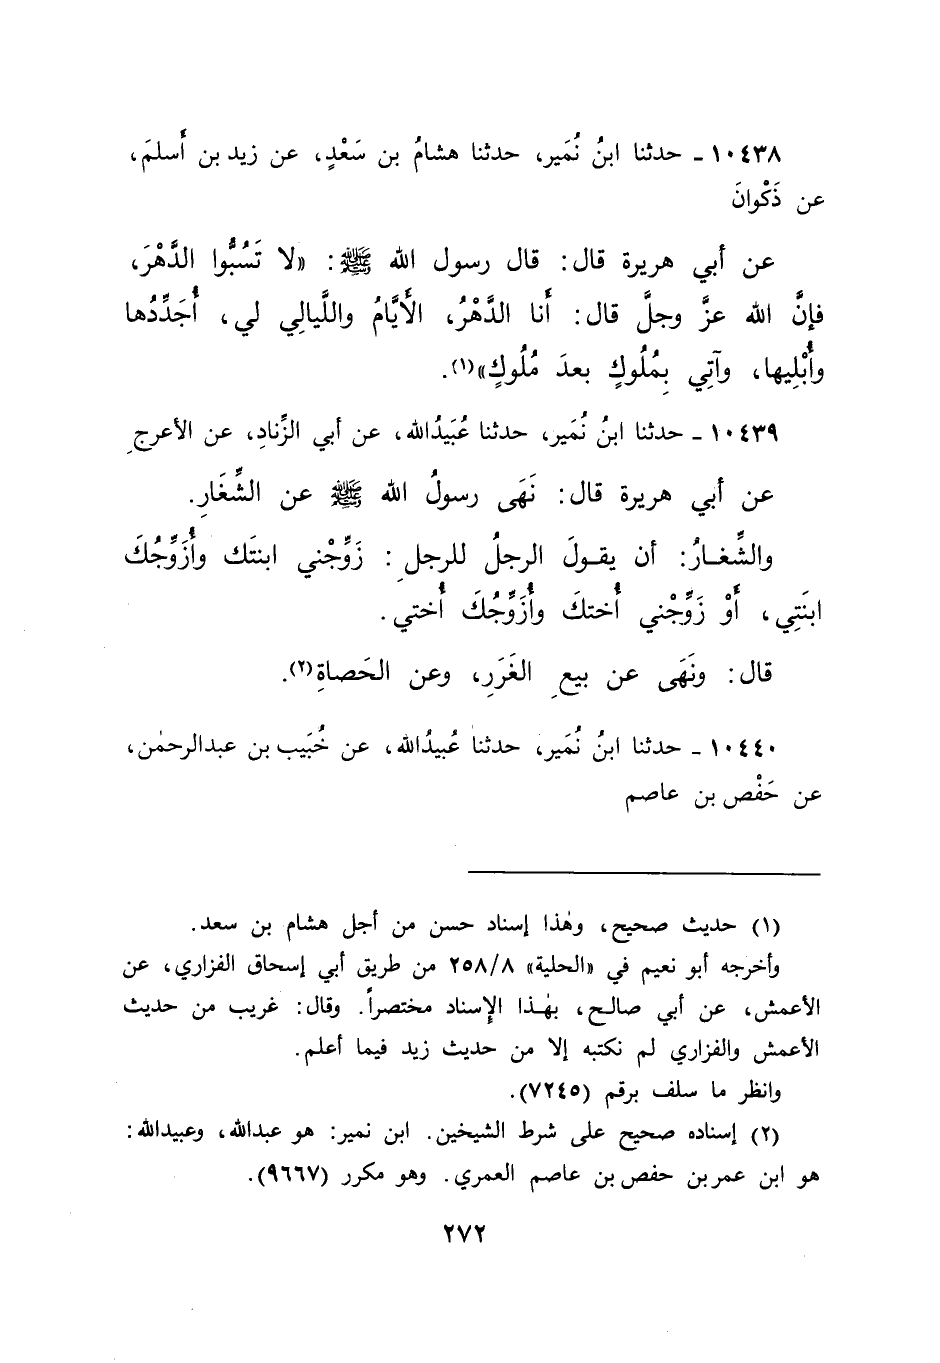 ١٠٤٣٨ ـ حدثنا ابنُ نُمَير، حدثنا هشامُ بن سَعْدٍ، عن زيد بن أَسلمَ،
عن ذَكْوانَ
عن أبي هريرة قال: قال رسول الله ﷺ: «لا تَسُبُّوا الدَّهْرَ،
فإنَّ الله عزَّ وجلَّ قال: أَنا الدَّهْرُ، الأَيَّامُ واللَّيالِي لي، أُجَدِّدُها
وأُبْلِيها، وآتِي بِمُلُوكٍ بعدَ مُلُوكٍ»(١).
١٠٤٣٩ ـ حدثنا ابنُ نُمَير، حدثنا عُبَيدُالله، عن أبي الزِّنادِ، عن الأعرجِ
عن أبي هريرة قال: نَهَى رسولُ الله ﷺ عن الشِّغَارِ.
والشِّغـارُ: أن يقـولَ الرجلُ للرجلِ: زَوِّجْني ابنتَك وأُزَوِّجُكَ
ابنَتِي، أَوْ زَوِّجْني أُختكَ وأُزَوِّجُكَ أُختي.
قال: ونَهَى عن بيعِ الغَرَرِ، وعن الحَصاةِ(٢).
١٠٤٤٠ ـ حدثنا ابنُ نُمَير، حدثنا عُبيدُالله، عن خُبَيب بن عبدالرحمٰن،
عن حَفْص بن عاصم
(١) حديث صحيح، وهٰذا إسناد حسن من أجل هشام بن سعد.
وأخرجه أبو نعيم في «الحلية» ٢٥٨/٨ من طريق أبي إسحاق الفزاري، عن
الأعمش، عن أبي صالـح، بهٰـذا الإسناد مختصراً. وقال: غريب من حديث
الأعمش والفزاري لم نكتبه إلا من حديث زيد فيما أعلم.
وانظر ما سلف برقم (٧٢٤٥).
(٢) إسناده صحيح على شرط الشيخين. ابن نمير: هو عبدالله، وعبيدالله:
هو ابن عمر بن حفص بن عاصم العمري. وهو مكرر (٩٦٦٧).
٢٧٢